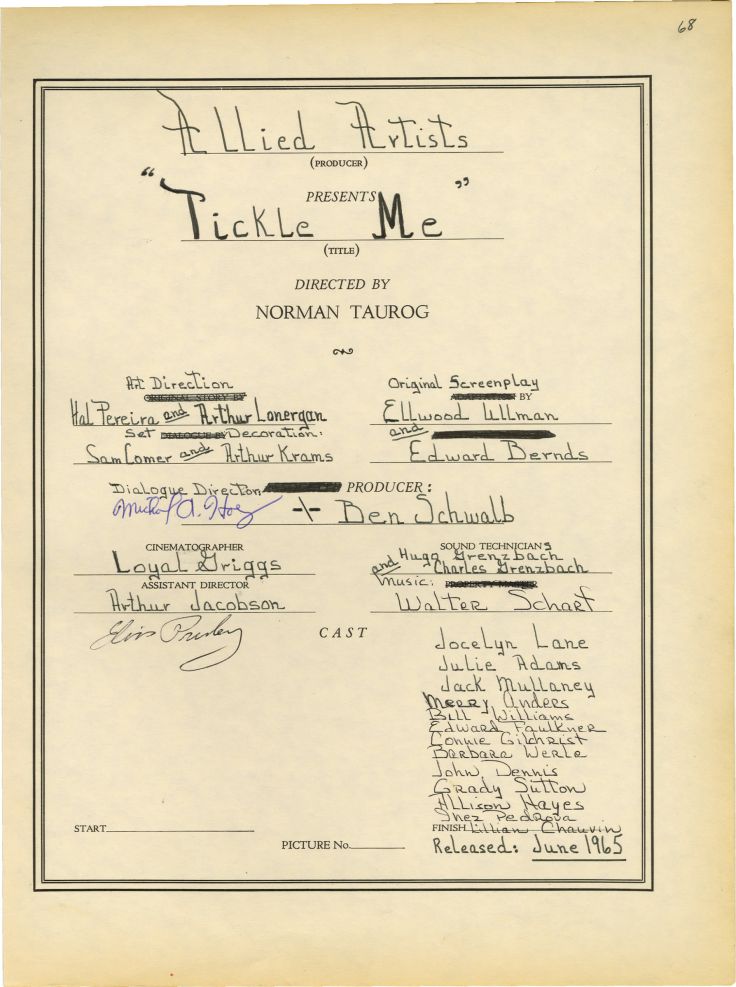 68
Allied Artists
(PRODUCER)
PRESENTS
"Tickle Me"
(TITLE)
DIRECTED BY
NORMAN TAUROG
Art Direction
ORIGINAL STORY BY
Hal Pereira and Arthur Lonergan
Set DIALOGUE BY Decoration:
Sam Comer and Arthur Krams
Original Screenplay
ADAPTATION BY
Ellwood Ullman
and
Edward Bernds
Dialogue Director PRODUCER:
Michael A. Hoey -|- Ben Schwalb
CINEMATOGRAPHER
Loyal Griggs
ASSISTANT DIRECTOR
Arthur Jacobson
SOUND TECHNICIANS
Hugo Grenzbach
and Charles Grenzbach
Music: PROPERTY MASTER
Walter Scharf
Elvis Presley
CAST
Jocelyn Lane
Julie Adams
Jack Mullaney
Merry Anders
Bill Williams
Edward Faulkner
Connie Gilchrist
Barbara Werle
John Dennis
Grady Sutton
Allison Hayes
Inez Pedroza
START
FINISH Lilian Chauvin
PICTURE No.
Released: June 1965